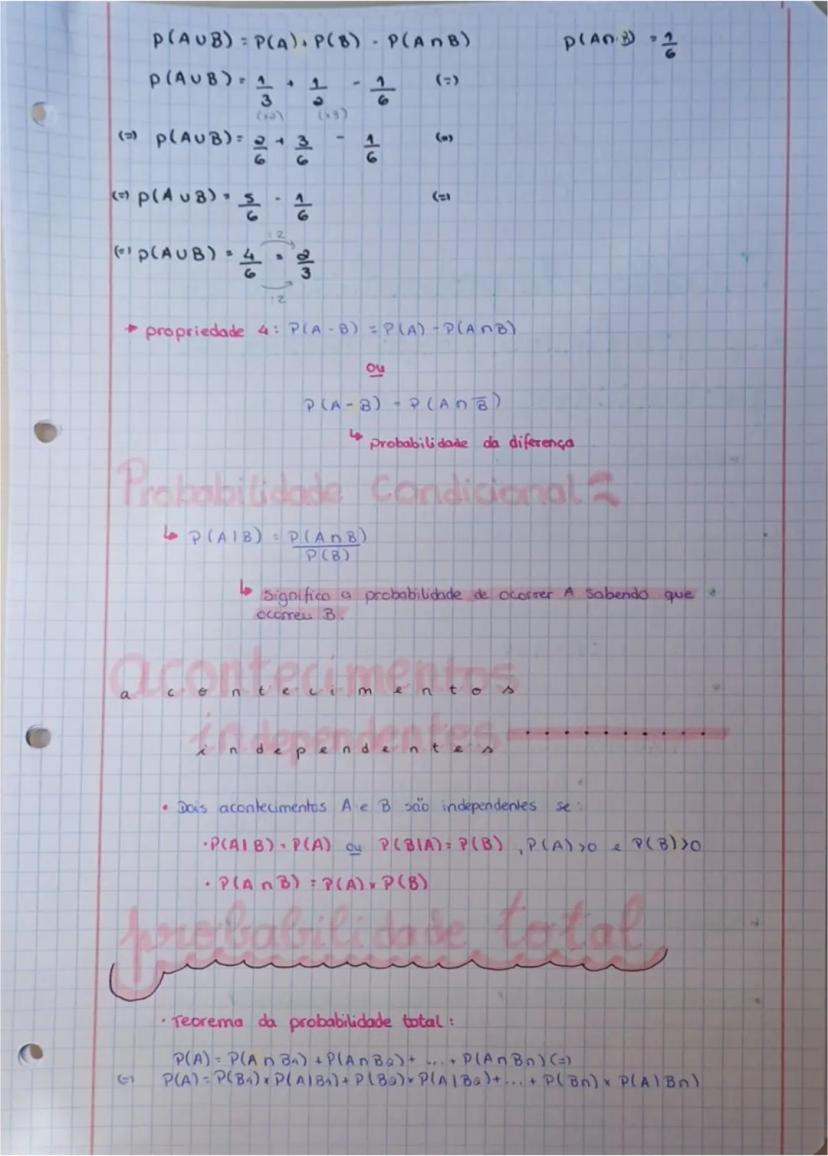 P(A∪B) = P(A) + P(B) - P(A∩B) P(A∩B) = 1/6
P(A∪B) = 1/3 + 1/2 - 1/6 (=)
(×2) (×3)
(=) P(A∪B) = 2/6 + 3/6 - 1/6 (=)
(=) P(A∪B) = 5/6 - 1/6 (=)
:2
(=) P(A∪B) = 4/6 = 2/3
:2
→ propriedade 4: P(A-B) = P(A) - P(A∩B)
ou
P(A-B) = P(A∩B̅)
↳ probabilidade da diferença
Probabilidade Condicional
↳ P(A|B) = P(A∩B)/P(B)
↳ Significa a probabilidade de ocorrer A sabendo que
ocorreu B.
acontecimentos
acontecimentos
independentes
independentes
• Dois acontecimentos A e B são independentes se:
• P(A|B) = P(A) ou P(B|A) = P(B), P(A)>0 e P(B)>0
• P(A∩B) = P(A) × P(B)
probabilidade total
• Teorema da probabilidade total:
P(A) = P(A∩B1) + P(A∩B2) + ... + P(A∩Bn) (=)
(=) P(A) = P(B1) × P(A|B1) + P(B2) × P(A|B2) + ... + P(Bn) × P(A|Bn)